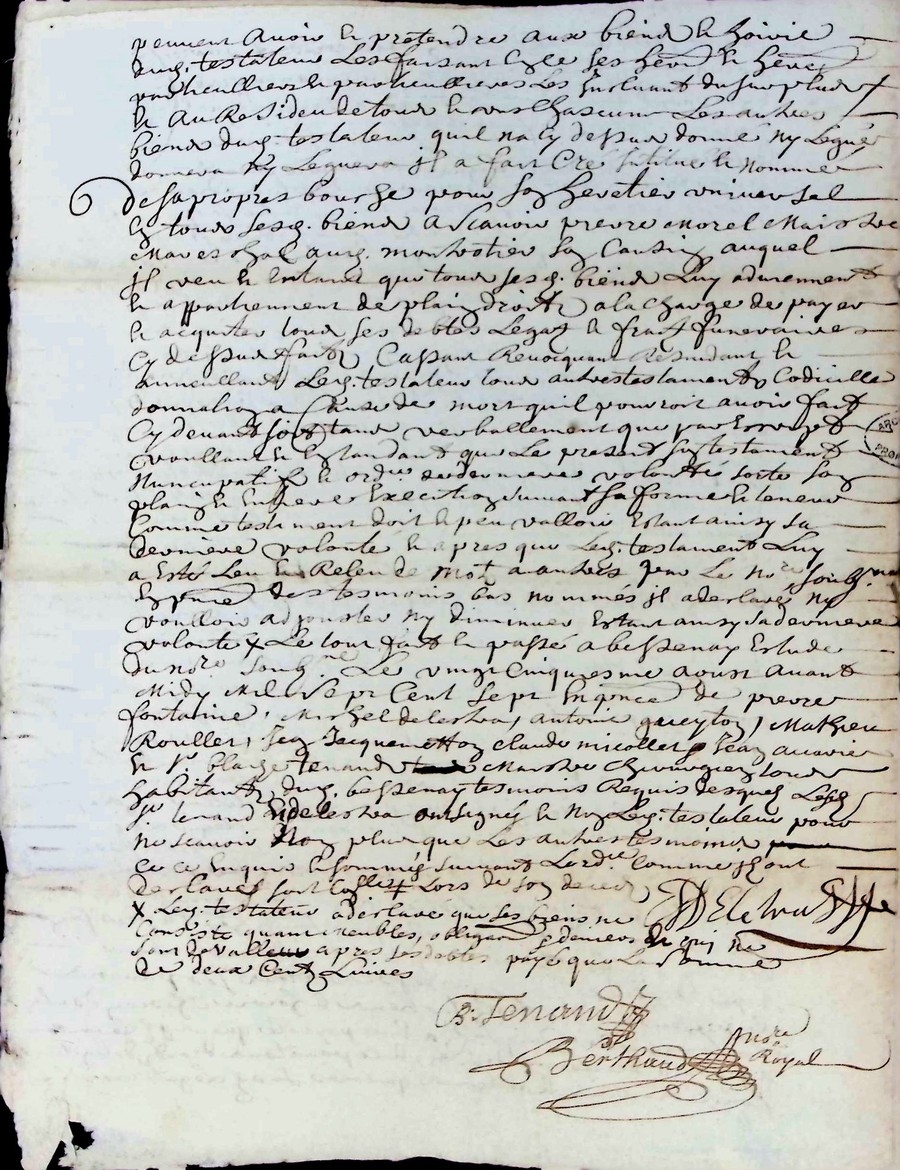 peuvent avoir et prétendre aux biens et hoirie
dud. testateur Les faisant ses
particulliers et particullieres Les Excluant du surplus
et Au Residu de tous et uns Chascuns Les autres
biens dud. testateur quil na cy dessus donné ny Legué
donnera Ny Leguera jl a fait Cré Institué et Nommé
De sa propres bouche pour son heretier universel
En tous sesd. biens a scavoir pierre Morel Maistre
Mareschal aud. montrotier son Cousin auquel
jl veut et Entand que tous sesd. biens Luy adviennent
et appartiennent de plain droit a la charge de payer
et acquiter tous ses debtes Legatz et fraitz funeraires
Cy dessus faitz Cassant Revocquant et
annullant Led. testateur tous autres testamentz Codicilles
donnations a Cause de mort quil pourroit avoir fait
Cy devant soit tant verballement que par Escript
voullant et Entandant que Le present son testament
Nuncupatif et ordre de derniere volonté sorte son
plain et Entiere Execution suivant sa forme et teneur
Comme testament doit et peu valloir Estant ainsy sa
derniere volonté et apres que Led. testament Luy
a Esté Leu et Releu de mot a autres par Le nore. soubzne
En pnce des tesmoins bas nommés jl a declaré ny
voulloir adjouster ny diminuer Estant ainsy sa derniere
volonté x Le tout fait et passé a bessenay Estude
du nore soubne Le vingt Cinquiesme aoust avant
Midy Mil Sept Cent Sept En pnce de pierre
fontaine, Michel delestra, antoine gueyton, Mathieu
Roullet, Jean Jacquemetton claude micollet Jean
et Sr blaise tenand Maistre Chirurgien tous
habitantz dud. bessenay tesmoins Requis desquels Lesd.
Sr tenand et delestra ont signés et Non Led. testateur pour
ne scavoir Non plus que Les autres tesmoins
de ce Enquis et sommés suivant Lordce Comme jl ont
declarés Lors de son deces
x Led. testateur a declaré que ses biens ne
Consiste quant meubles, obligaon deniers et qui ne
sont de valleur apres ses debtes payé que La somme
de deux Cent Livres
DElestra
B. Tenand
Berthaud nore Royal